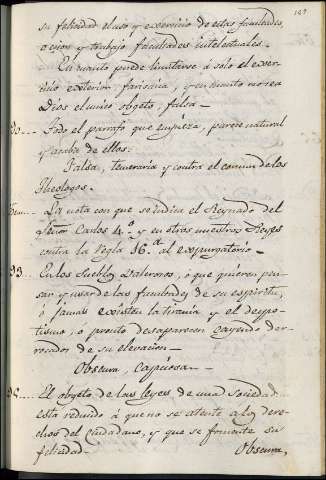 su felicidad el uso y exercicio de estas facultades,
ocios y trabajo facultades intelectuales.
En cuanto puede limitarse á solo el exer-
cicio exterior, farisaica, y en quanto no sea
Dios el unico objeto, falsa —
Todo el parrafo que empieza, parece natural
y acaba de ellos.
Falsa, temeraria y contra el comun de los
Theologos.
La nota con que se indica el Reynado del
Señor Carlos 4.º y en otras nuestros Reyes
contra la Regla 16.ª al expurgatorio —
93... En los Pueblos Valerosos, ó que quieren pen-
sar y usar de las facultades de su espiritu,
ó jamas existen la tirania y el despo-
tismo, ó pronto desaparecen cayendo der-
rocados de su elevacion —
Obscura, capciosa —
El objeto de las leyes de una sociedad
está reducido á que no se atente a los dere-
chos del ciudadano, y que se fomente su
felicidad —
Obscura,